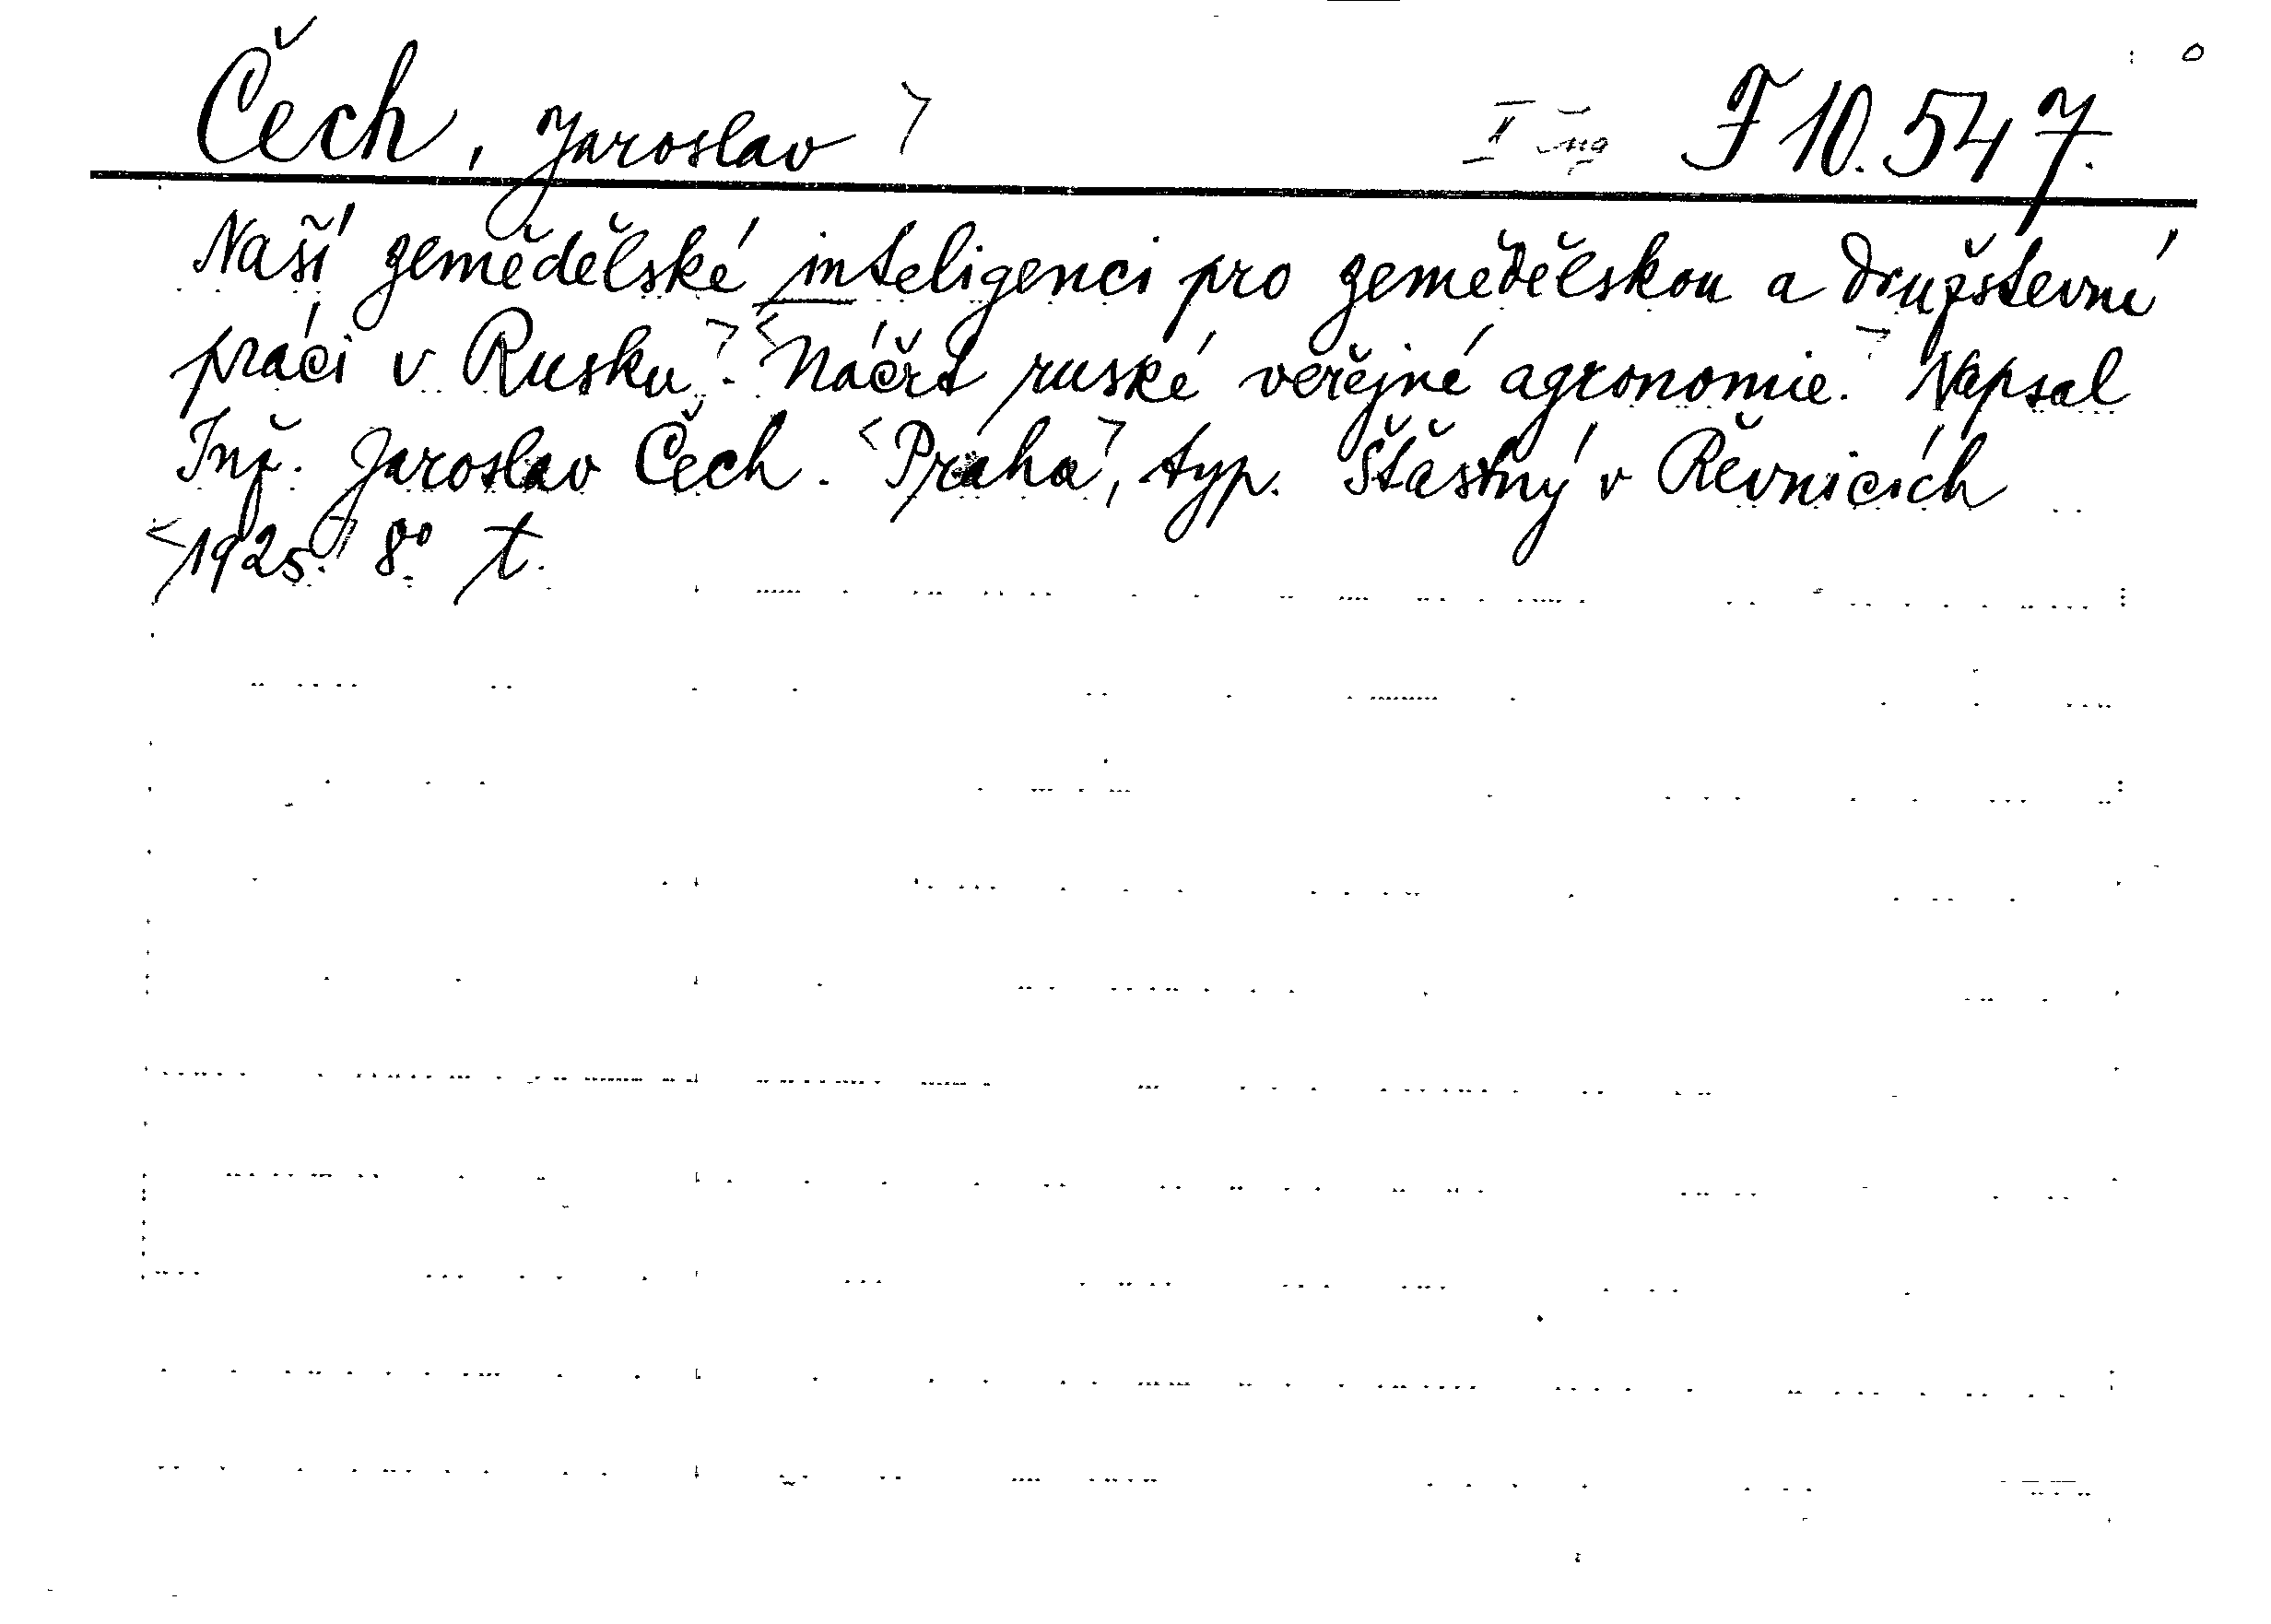 Čech, Jaroslav F 10.547.
Naší zemědělské inteligenci pro zemědělskou a družstevní
práci v Rusku. Náčrt ruské veřejné agronomie. Napsal
Inž. Jaroslav Čech. Praha, typ. Šťastný v Řevnicích
1925. 8° t.